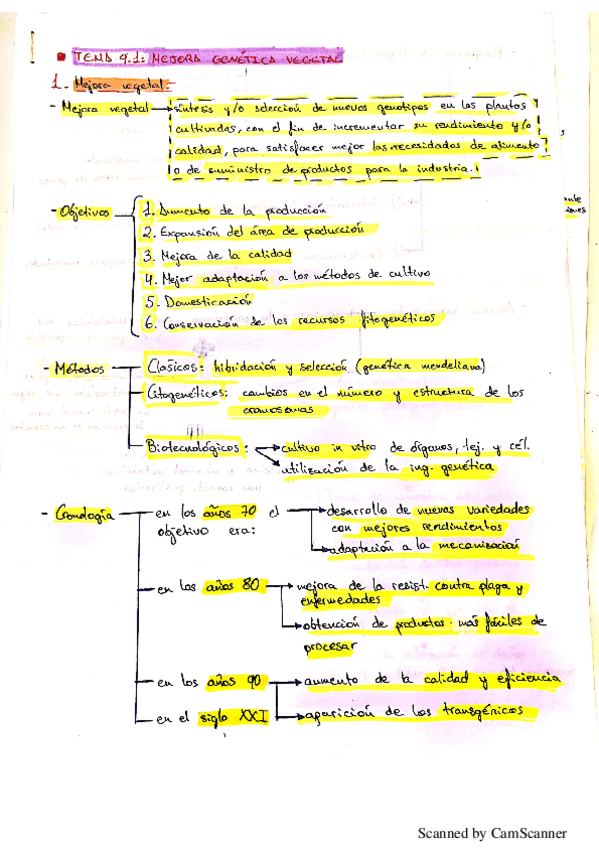 TEMA 9.1: MEJORA GENÉTICA VEGETAL
1. Mejora vegetal:
- Mejora vegetal → síntesis y/o selección de nuevos genotipos en las plantas
cultivadas, con el fin de incrementar su rendimiento y/o
calidad, para satisfacer mejor las necesidades de alimento
o de suministro de productos para la industria.
- Objetivos
1. Aumento de la producción
2. Expansión del área de producción
3. Mejora de la calidad
4. Mejor adaptación a los métodos de cultivo
5. Domesticación
6. Conservación de los recursos fitogenéticos
- Métodos
Clásicos: hibridación y selección (genética mendeliana)
Citogenéticos: cambios en el número y estructura de los
cromosomas
Biotecnológicos: → cultivo in vitro de órganos, tej. y cél.
utilización de la ing. genética
- Cronología
en los años 70 el → desarrollo de nuevas variedades
objetivo era: con mejores rendimientos
→ adaptación a la mecanización
en los años 80 → mejora de la resist. contra plaga y
enfermedades
→ obtención de productos más fáciles de
procesar
en los años 90 → aumento de la calidad y eficiencia
en el siglo XXI → aparición de los transgénicos
Scanned by CamScanner